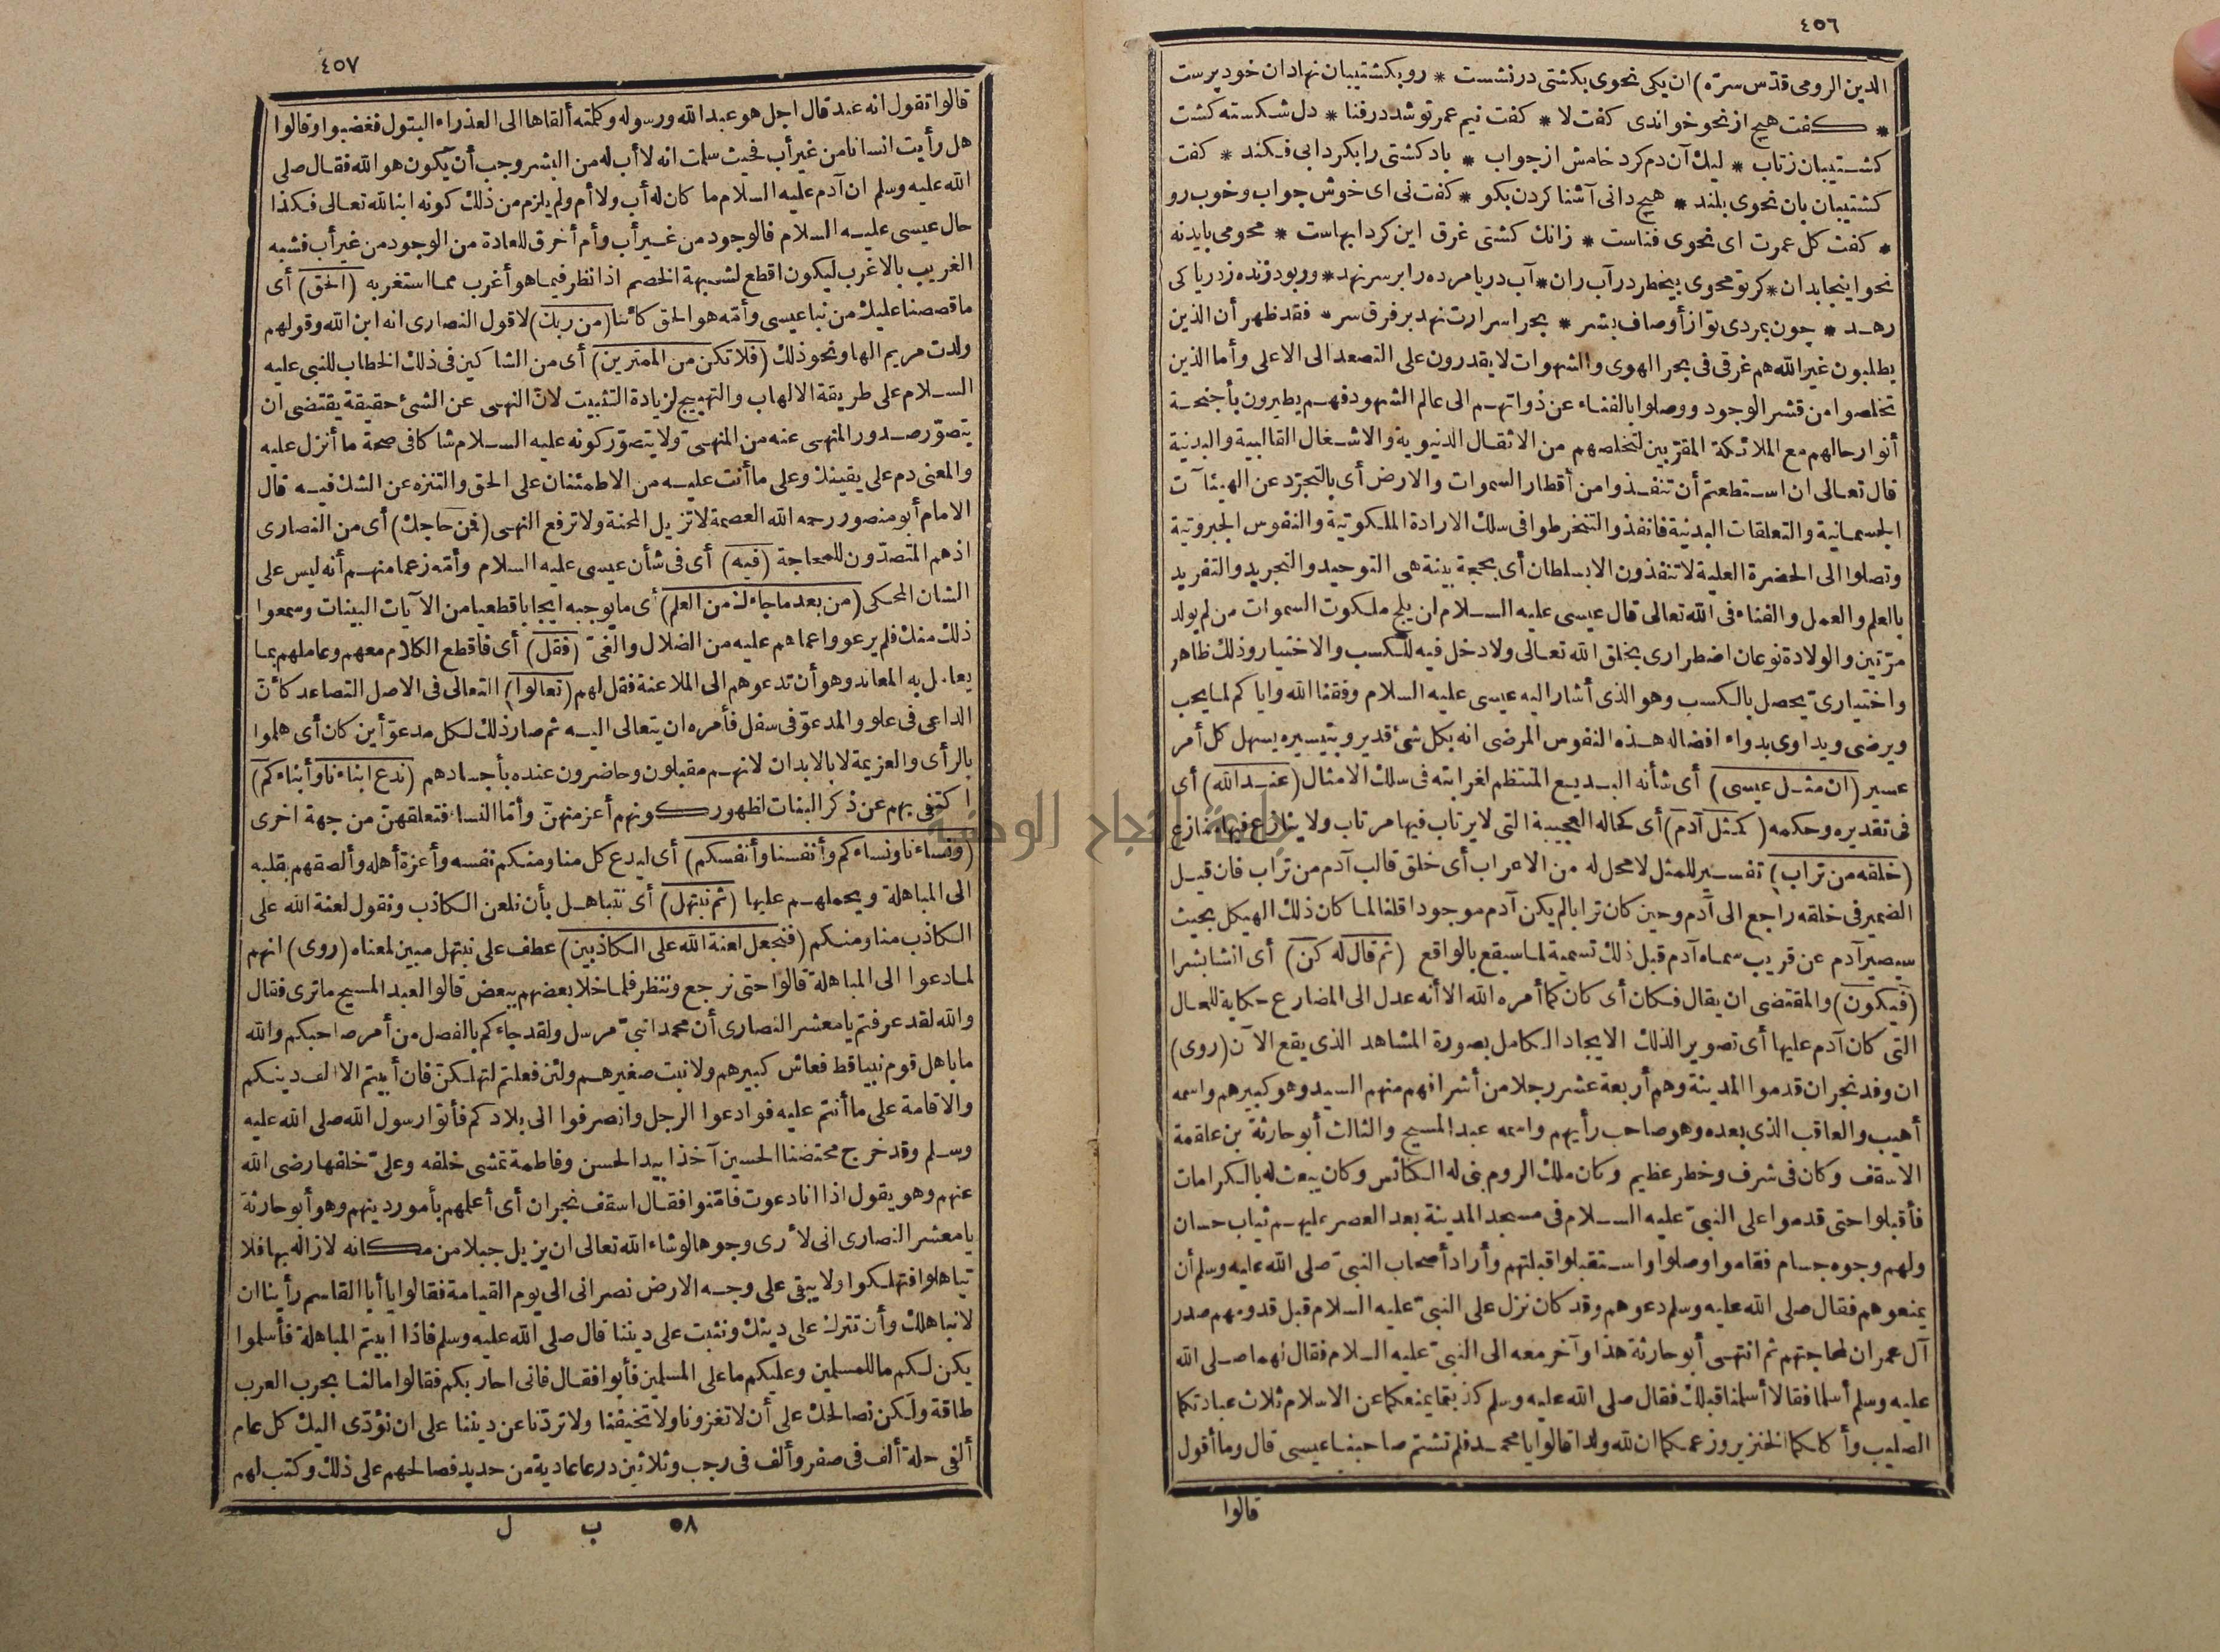 ٤٥٦
الدين الرومى قدّس سرّه) ان يكى نحوى بكشتى درنشست * روبكشتيبان نهادان خود پرست
* كفت هيچ از نحو خواندى كفت لا * كفت نيم عمر توشد درفنا * دل شكسته كشت
كشتيبان زتاب * ليك آن دم كرد خامش از جواب * باد كشتى رابكردابى فكند * كفت
كشتيبان بان نحوى بلند * هيچ دانى آشنا كردن بكو * كفت نى اى خوش جواب وخوب رو
* كفت كل عمرت اى نحوى فناست * زانك كشتى غرق اين كردابهاست * محومى بايدنه
نحو اينجا بدان * كرتو محوى بيخطر در آب ران * آب دريا مرده را بر سر نهد * وربود زنده زدرياكى
رهد * چون بمردى تواز أوصاف بشر * بحر اسرارت نهد برفرق سر * فقد ظهر أن الذين
يطلبون غير الله هم غرقى فى بحر الهوى والشهوات لا يقدرون على التصعد الى الاعلى وأما الذين
تخلصوا من قشر الوجود ووصلوا بالفناء عن ذواتهم الى عالم الشهود فهم يطيرون بأجنحة
أنوار حالهم مع الملائكة المقرّبين لتخلصهم من الاثقال الدنيوية والاشغال القالبية والبدنية
قال تعالى ان استطعتم أن تنفذوا من أقطار السموات والارض أى بالتجرّد عن الهيئآت
الجسمانية والتعلقات البدنية فانفذوا لتنخرطوا فى سلك الارادة الملكوتية والنفوس الجبروتية
وتصلوا الى الحضرة العلية لا تنفذون الا بسلطان أى بحجة بينة هى التوحيد والتجريد والتفريد
بالعلم والعمل والفناء فى الله تعالى قال عيسى عليه السلام ان يلج ملكوت السموات من لم يولد
مرّتين والولادة نوعان اضطرارى بخلق الله تعالى ولا دخل فيه للكسب والاختيار وذلك ظاهر
واختيارىّ يحصل بالكسب وهو الذى أشار اليه عيسى عليه السلام وفقنا الله واياكم لما يحب
ويرضى ويداوى بدواء افضاله هذه النفوس المرضى انه بكل شئ قدير وبتيسيره يسهل كل أمر
عسير (ان مثل عيسى) أى شأنه البديع المنتظم لغرابته فى سلك الامثال (عند الله) أى
فى تقديره وحكمه (كمثل آدم) أى كحاله العجيبة التى لا يرتاب فيها مرتاب ولا ينازع فيها منازع
(خلقه من تراب) تفسير للمثل لا محل له من الاعراب أى خلق قالب آدم من تراب فان قيل
الضمير فى خلقه راجع الى آدم وحين كان ترابا لم يكن آدم موجودا قلنا لما كان ذلك الهيكل بحيث
سيصير آدم عن قريب سماه آدم قبل ذلك تسمية لما سيقع بالواقع (ثم قال له كن) أى انشا بشرا
(فيكون) والمقتضى ان يقال فكان أى كان كما أمره الله الا أنه عدل الى المضارع حكاية للحال
التى كان آدم عليها أى تصوير الذلك الايجاد الكامل بصورة المشاهد الذى يقع الآن (روى)
ان وفد نجران قدموا المدينة وهم أربعة عشر رجلا من أشرافهم منهم السيد وهو كبيرهم واسمه
أهيب والعاقب الذى بعده وهو صاحب رأيهم واسمه عبد المسيح والثالث أبو حارثة بن علقمة
الاسقف وكان فى شرف وخطر عظيم وكان ملك الروم بنى له الكنائس وكان يبعث له بالكرامات
فأقبلوا حتى قدموا على النبىّ عليه السلام فى مسجد المدينة بعد العصر عليهم ثياب حسان
ولهم وجوه جسام فقاموا وصلوا واستقبلوا قبلتهم وأراد أصحاب النبىّ صلى الله عليه وسلم أن
يمنعوهم فقال صلى الله عليه وسلم دعوهم وقد كان نزل على النبىّ عليه السلام قبل قدومهم صدر
آل عمران لمحاجتهم ثم انتهى أبو حارثة هذا وآخر معه الى النبىّ عليه السلام فقال لهما صلى الله
عليه وسلم أسلما فقالا أسلمنا قبلك فقال صلى الله عليه وسلم كذبتما يمنعكما عن الاسلام ثلاث عبادتكما
الصليب وأكلكما الخنزير وزعمكما ان لله ولدا قالوا يا محمد فلم تشتم صاحبنا عيسى قال وما أقول
قالوا
٤٥٧
قالوا تقول انه عبد قال اجل هو عبد الله ورسوله وكلمته ألقاها الى العذراء البتول فغضبوا وقالوا
هل رأيت انسانا من غير أب فحيث سلمت انه لا أب له من البشر وجب أن يكون هو الله فقال صلى
الله عليه وسلم ان آدم عليه السلام ما كان له أب ولا أم ولم يلزم من ذلك كونه ابنا لله تعالى فكذا
حال عيسى عليه السلام فالوجود من غير أب وأم أخرق للعادة من الوجود من غير أب فشبه
الغريب بالاغرب ليكون اقطع لشبهة الخصم اذا نظر فيما هو أغرب مما استغربه (الحق) أى
ما قصصنا عليك من نبا عيسى وأمّه هو الحق كائنا (من ربك) لا قول النصارى انه ابن الله وقولهم
ولدت مريم الها ونحو ذلك (فلا تكن من الممترين) أى من الشاكين فى ذلك الخطاب للنبى عليه
السلام على طريقة الالهاب والتهييج لزيادة التثبيت لانّ النهى عن الشئ حقيقة يقتضى ان
يتصوّر صدور المنهى عنه من المنهىّ ولا يتصوّر كونه عليه السلام شاكا فى صحة ما أنزل عليه
والمعنى دم على يقينك وعلى ما أنت عليه من الاطمئنان على الحق والتنزه عن الشك فيه قال
الامام أبو منصور رحمه الله العصمة لا تزيل المحنة ولا ترفع النهى (فمن حاجك) أى من النصارى
اذهم المتصدّون للمحاجة (فيه) أى فى شأن عيسى عليه السلام وأمّه زعما منهم أنه ليس على
الشان المحكى (من بعد ما جاءك من العلم) أى ما يوجبه ايجابا قطعيا من الآيات البينات وسمعوا
ذلك منك فلم يرعووا عما هم عليه من الضلال والغىّ (فقل) أى فاقطع الكلام معهم وعاملهم بما
يعامل به المعاند وهو أن تدعوهم الى الملاعنة فقل لهم (تعالوا) التعالى فى الاصل التصاعد كأنّ
الداعى فى علو والمدعوّ فى سفل فأمره ان يتعالى اليه ثم صار ذلك لكل مدعوّ أين كان أى هلموا
بالرأى والعزيمة لا بالابدان لانهم مقبلون وحاضرون عنده بأجسادهم (ندع ابناءنا وأبناءكم)
اكتفى بهم عن ذكر البنات لظهور كونهم أعز منهنّ وأمّا النساء فتعلقهنّ من جهة اخرى
(ونساءنا ونساءكم وأنفسنا وأنفسكم) أى ليدع كل منا ومنكم نفسه وأعزة أهله وألصقهم بقلبه
الى المباهلة ويحملهم عليها (ثم نبتهل) أى نتباهل بأن نلعن الكاذب ونقول لعنة الله على
الكاذب منا ومنكم (فنجعل لعنة الله على الكاذبين) عطف على نبتهل مبين لمعناه (روى) انهم
لما دعوا الى المباهلة قالوا حتى نرجع وننظر فلما خلا بعضهم ببعض قالوا لعبد المسيح ما ترى فقال
والله لقد عرفتم يا معشر النصارى أن محمدا نبىّ مرسل ولقد جاءكم بالفصل من أمر صاحبكم والله
ما باهل قوم نبيا قط فعاش كبيرهم ولا نبت صغيرهم ولئن فعلتم لتهلكنّ فان أبيتم الا الف دينكم
والاقامة على ما أنتم عليه فوادعوا الرجل وانصرفوا الى بلادكم فأتوا رسول الله صلى الله عليه
وسلم وقد خرج محتضنا الحسين آخذا بيد الحسن وفاطمة تمشى خلفه وعلىّ خلفها رضى الله
عنهم وهو يقول اذا انا دعوت فامّنوا فقال اسقف نجران أى أعلمهم بأمور دينهم وهو أبو حارثة
يا معشر النصارى انى لأرى وجوها لو شاء الله تعالى ان يزيل جبلا من مكانه لازاله بها فلا
تباهلوا فتهلكوا ولا يبقى على وجه الارض نصرانى الى يوم القيامة فقالوا يا أبا القاسم رأينا ان
لا نباهلك وأن نترك على دينك ونثبت على ديننا قال صلى الله عليه وسلم فاذا ابيتم المباهلة فأسلموا
يكن لكم ما للمسلمين وعليكم ما على المسلمين فأبوا فقال فانى احاربكم فقالوا ما لنا بحرب العرب
طاقة ولكن نصالحك على أن لا تغزونا ولا تخيفنا ولا تردّنا عن ديننا على ان نؤدّى اليك كل عام
ألفى حلة ألف فى صفر وألف فى رجب وثلاثين درعا عادية من حديد فصالحهم على ذلك وكتب لهم
٥٨ ب ل
جامعة النجاح الوطنية